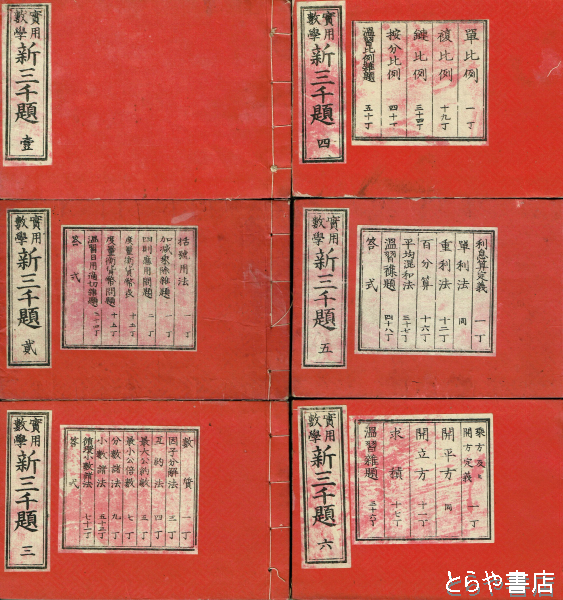 實用
數學
新三千題
壹
實用
數學
新三千題
貳
括號用法 一丁
加減乗除雜題 二丁
四則應用問題
度量衡貨幣表 十二丁
度量衡貨幣問題 十五丁
溫習日用適切雜題
答式
實用
數學
新三千題
三
數質 一丁
因子分解法 三丁
定約法 四丁
最大公約數 三丁
最小公倍數 七丁
分數諸法 九丁
小數諸法 五十三丁
循環小數諸法 七十一丁
答式
實用
數學
新三千題
四
單比例 一丁
複比例 十九丁
鏈比例 三十四丁
按分比例 四十丁
溫習比例雜題 五十丁
實用
數學
新三千題
五
利息算定義 一丁
單利法 同
重利法 十二丁
百分算 十六丁
平均混和法 三十七丁
溫習雜題 四十八丁
答式
實用
數學
新三千題
六
乘方及
開方定義 一丁
開平方 同
開立方 十一丁
求積 十七丁
溫習雜題 三十六丁
とらや書店